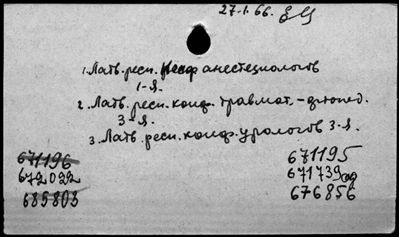 27.I.66.
1. Латв. респ. конф анестезиологов
1-я.
2. Латв. респ. конф. травмат. - ортопед.
3-я.
3. Латв. респ. конф. урологов 3-я.
671196 671195
672022 671739
685803 676856